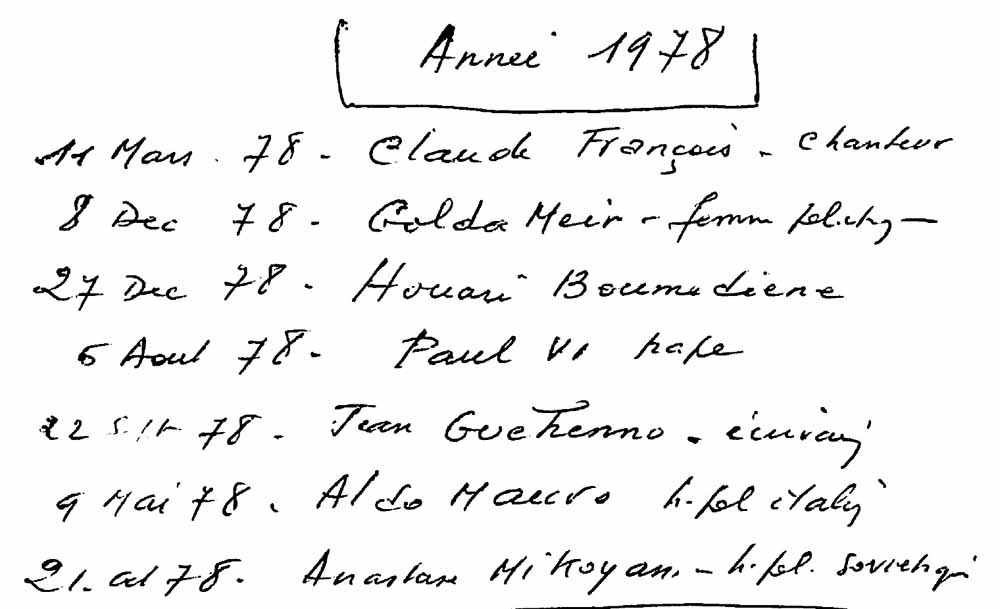 Année 1978
11 Mars. 78 - Claude François - Chanteur
8 Dec 78 - Golda Meir - femme politiq
27 Dec 78 - Houari Boumediene
6 Aout 78 - Paul VI pape
22 Sept 78 - Jean Guehenno - écrivain
9 Mai 78 - Aldo Mauro h. pol italien
21 oct 78 - Anastase Mikoyan - h. pol. Sovietique